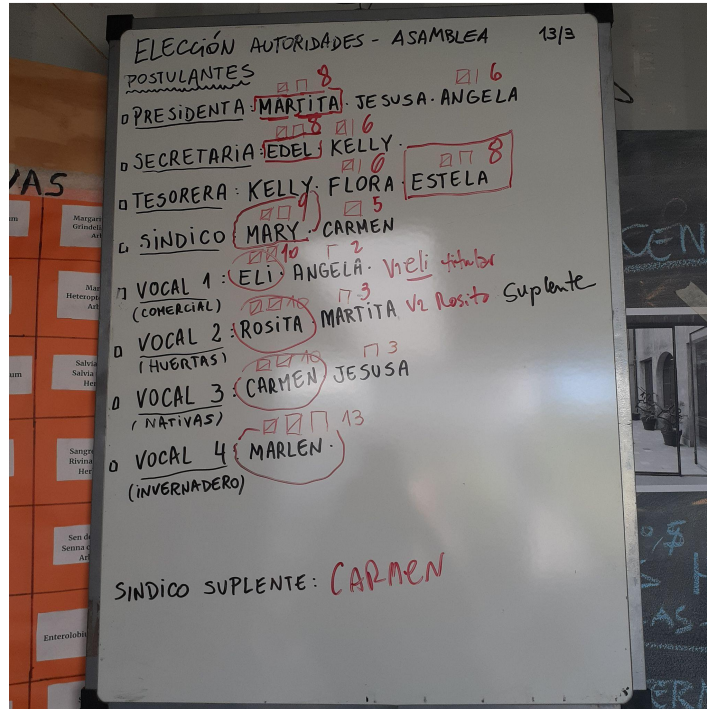 ELECCIÓN AUTORIDADES - ASAMBLEA 13/3
POSTULANTES
8 6
PRESIDENTA: MARTITA · JESUSA · ANGELA
8 6
SECRETARIA: EDEL · KELLY ·
6 8
TESORERA: KELLY · FLORA · ESTELA
9 5
SINDICO: MARY · CARMEN
10 2
VOCAL 1: ELI · ANGELA · V1 eli titular
(COMERCIAL)
10 3
VOCAL 2: ROSITA · MARTITA V2 Rosita Suplente
(HUERTAS)
10 3
VOCAL 3: CARMEN JESUSA
(NATIVAS)
13
VOCAL 4: MARLEN ·
(INVERNADERO)
SINDICO SUPLENTE: CARMEN
VAS
Salvia
Salvia
Rivina
Sen de
Senna
Enterolobiu
CEN